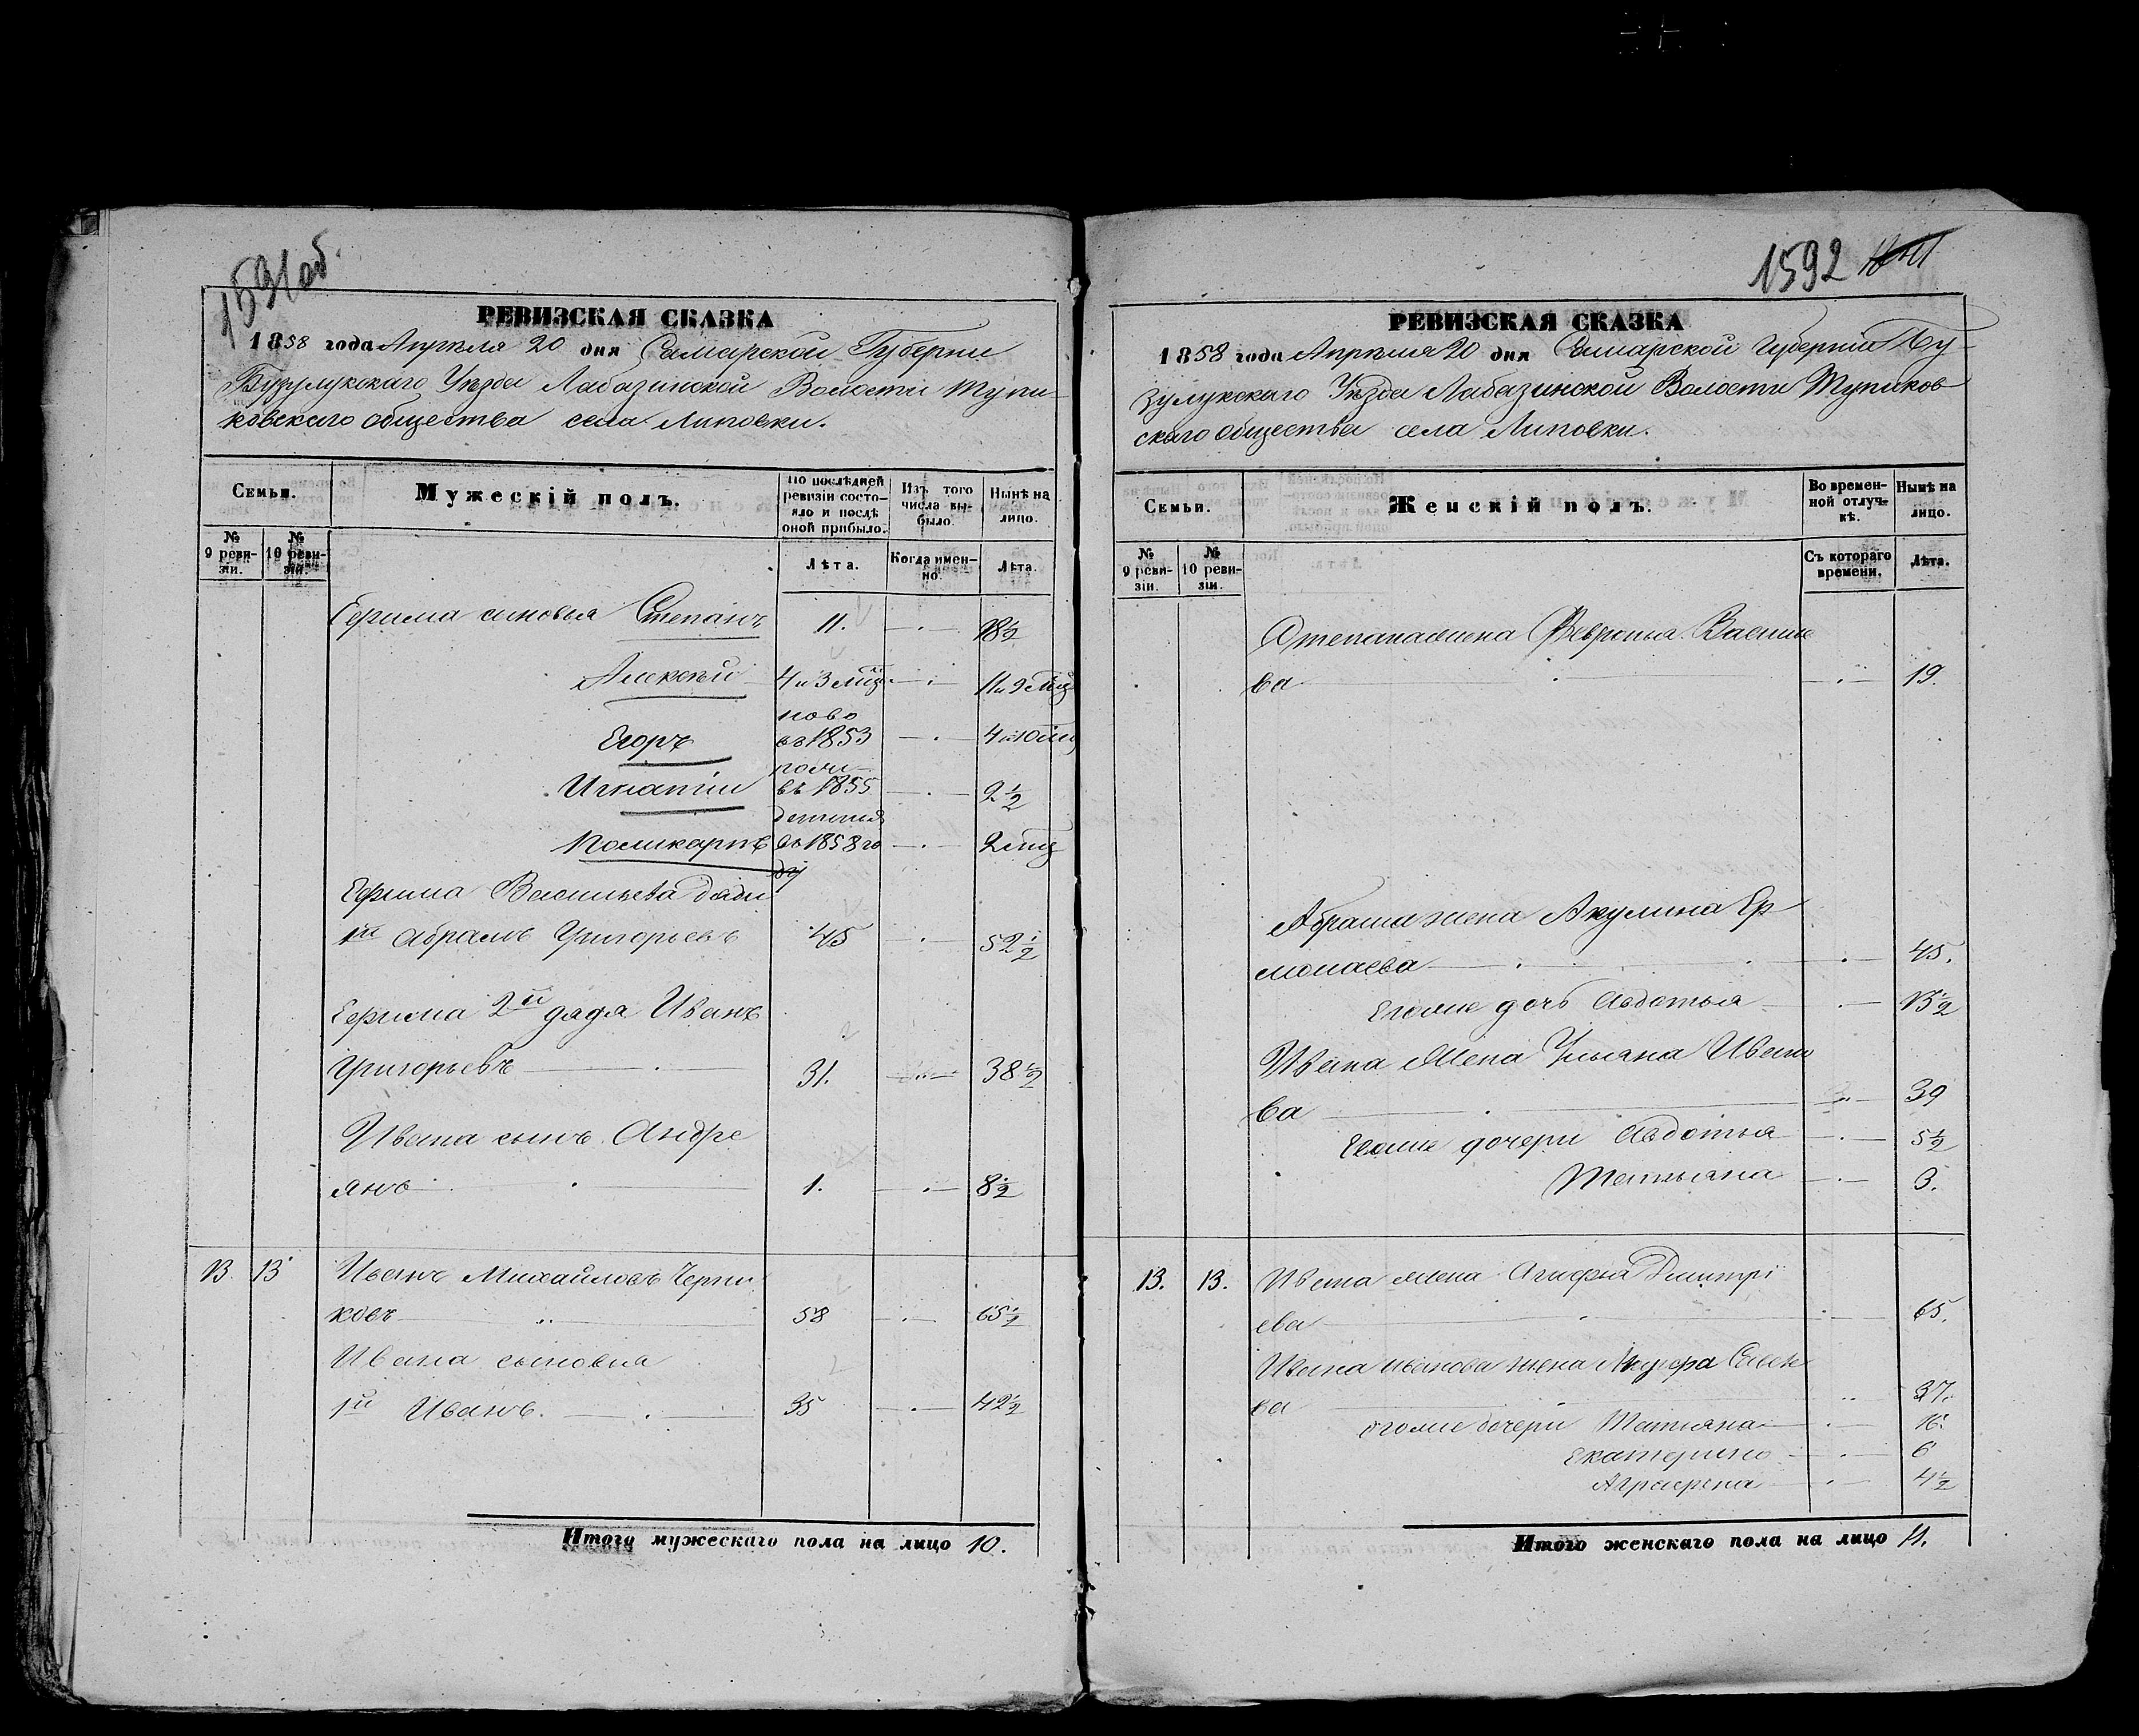 1591об.
РЕВИЗСКАЯ СКАЗКА
1858 года Апреля 20 дня Самарской Губерни
Бузулукскаго Уѣзда Лабазинской Волости Тупи-
ковскаго общества села Липовки.
Семьи.
Мужескій полъ.
По послѣдней ревизіи состо-яло и послѣ оной прибыло.
Изъ того числа вы-было.
Нынѣ на лицо.
№ 9 реви-зіи.
№ 10 реви-зіи.
Лѣта.
Когда имен-но.
Лѣта.
Ефима сыновья Степанъ 11. 18½
Алексѣй 4 и 3 мѣц. 11 и 9 мѣц
Егоръ ново въ 1853 4 и 10 мѣц
Игнатій въ 1855 2½
Поликарпъ въ 1858 го 2 мѣц
ду
Ефима Васильева дяди
1й Абрамъ Григорьевъ 45 52½
Ефима 2й дядя Иванъ
Григорьевъ 31. 38½
Ивана сынъ Андре
янъ 1. 8½
13. 13 Иванъ Михайловъ Черни
ковъ 58 65½
Ивана сыновья
1й Иванъ. 35 42½
Итого мужескаго пола на лицо 10.
1592
РЕВИЗСКАЯ СКАЗКА
1858 года Апрѣля 20 дня Самарской Губерніи Бу-
зулукскаго Уѣзда Лабазинской Волости Тупиков
скаго общества села Липовки.
Семьи.
Женскій полъ.
Во времен-ной отлуч-кѣ.
Нынѣ на лицо.
№ 9 реви-зіи.
№ 10 реви-зіи.
Съ котораго времени.
Лѣта.
Степана жена Февронья Василье
ва 19.
Абрама жена Акулина Ер
молаева 45.
Егоже дочь Авдотья 13½
Ивана Жена Ульяна Ивано
ва 39
Егоже дочери Авдотья 5½
Татьяна 3.
13. 13. Ивана жена Агафья Дмитрі
ева 65.
Ивана Иванова жена Савель
ва 37.
Егоже дочери Татьяна 16.
Екатерина 6
Аграфена 4½
Итого женскаго пола на лицо 11.